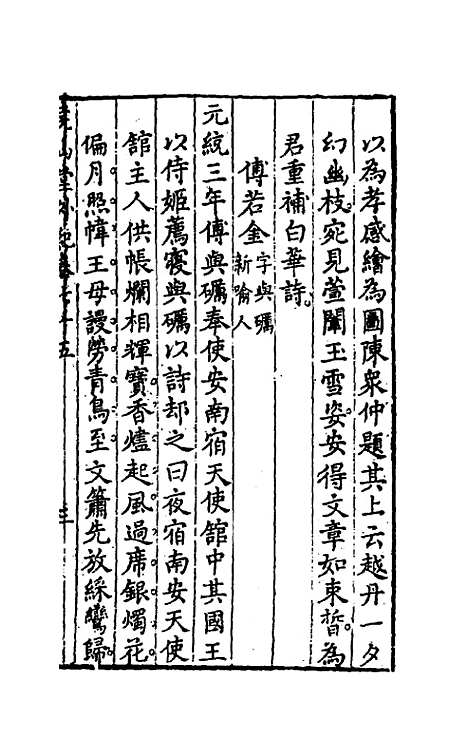 以為孝感繪為圖陳衆仲題其上云越丹一夕
幻幽枝宛見萱闈玉雪姿安得文章如束晳為
君重補白華詩
傅若金字與礪新喻人
元統三年傅與礪奉使安南宿天使館中其國王
以侍姬薦寢與礪以詩却之曰夜宿南安天使
舘主人供帳爛相輝寶香爐起風過席銀燭花
偏月照幃王母謾勞青鳥至文簫先放綵鸞歸
堯山堂外紀卷七十五